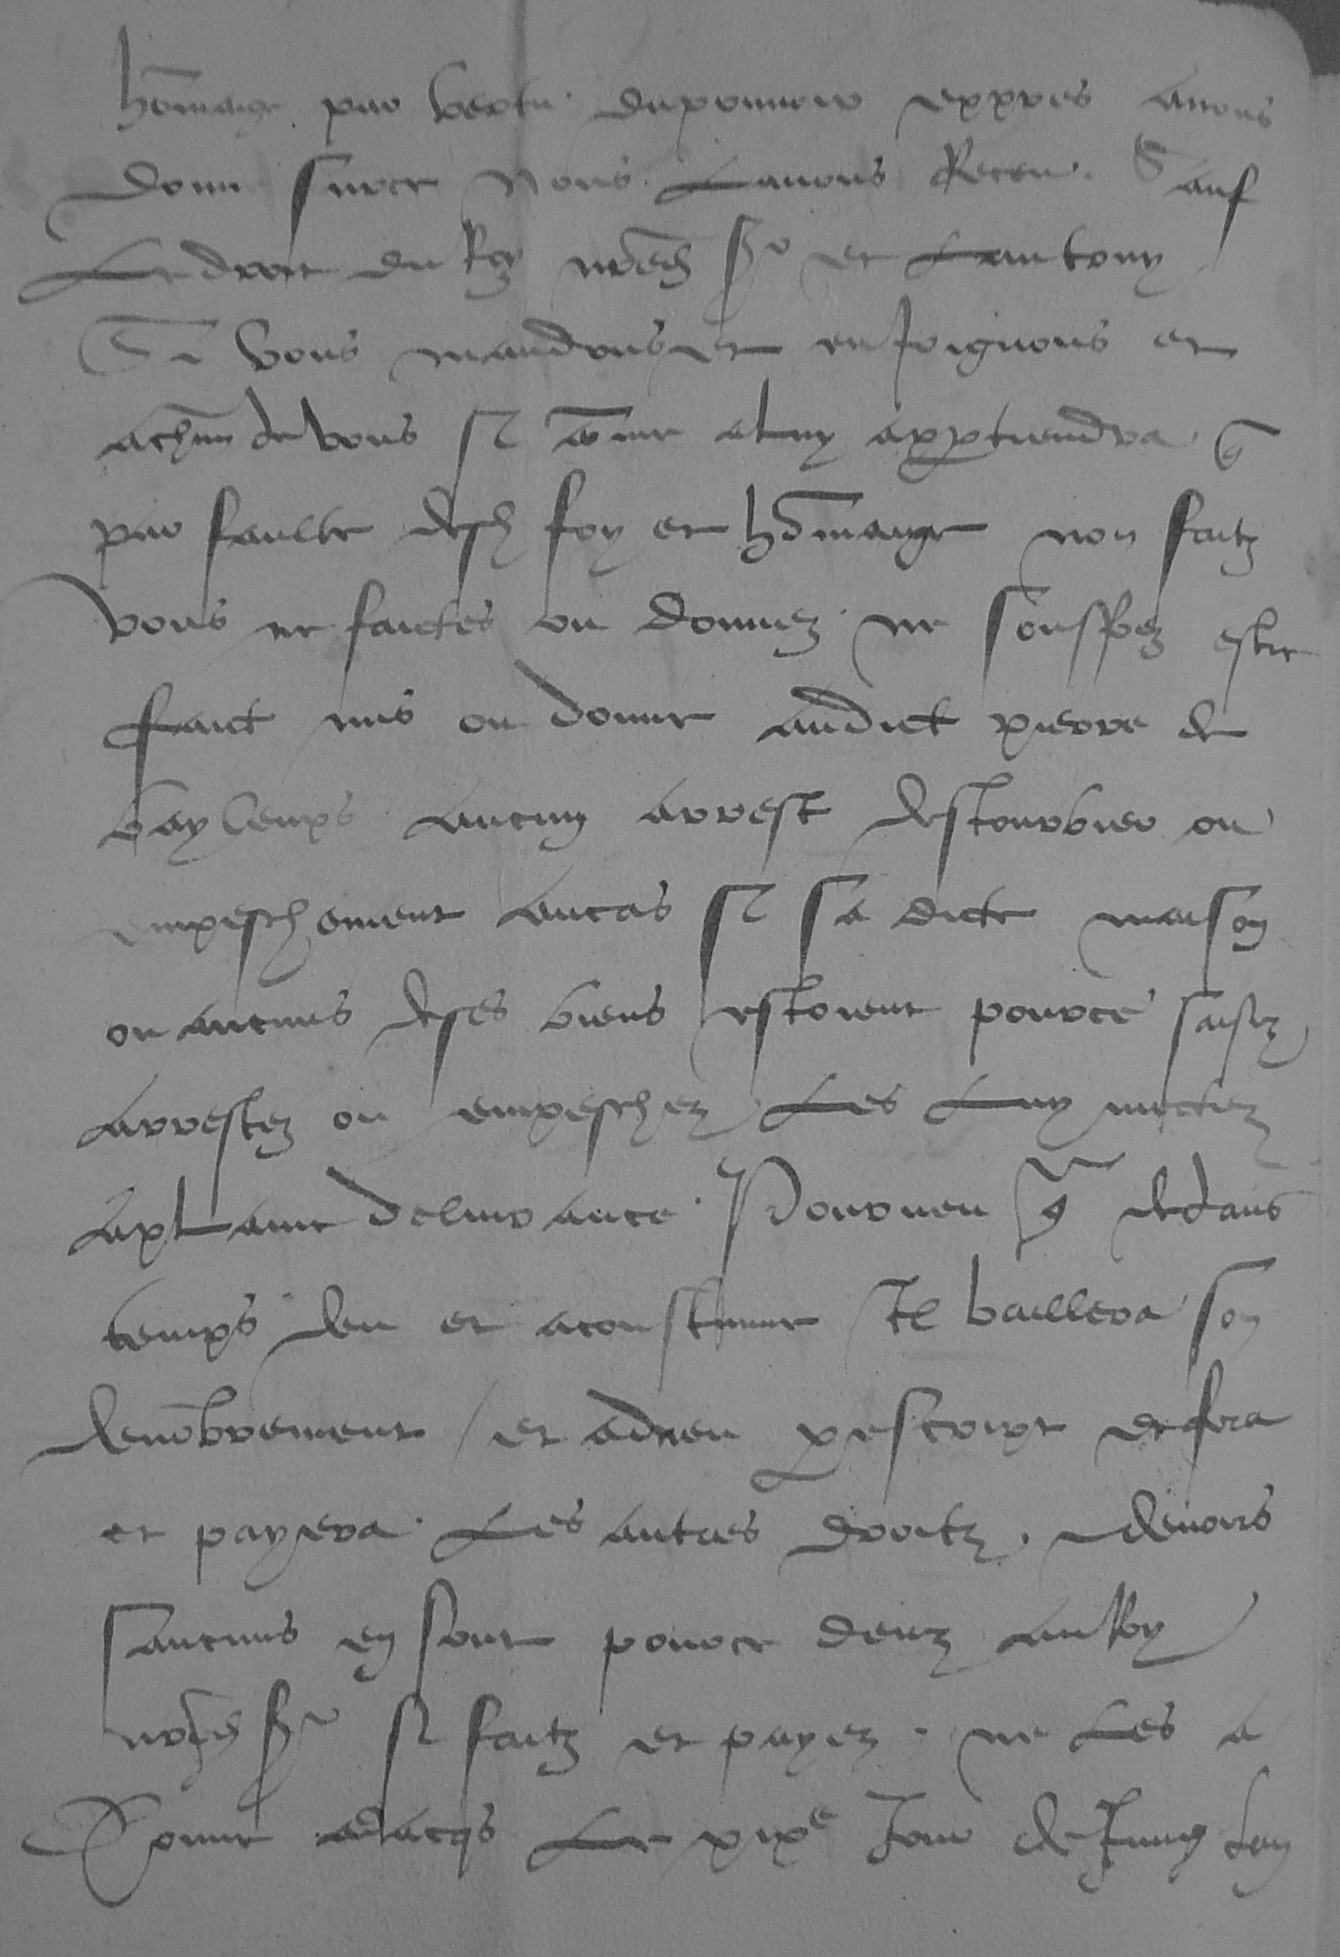 hommaige par vertu du pouvoir expres a nous
donne sur ce nous lavons Receu. Sauf
Le droit du Roy nred. sr et Lautruy
Si vous mandons et enJoignons et
a chun de vous si comme a luy appartiendra q
par faulte desd. foy et hommaige non faitz
vous ne faictes ou donnez ne souffrez estre
faict mis ou donne audict pierre de
baylenxs aucun arrest destourbier ou
empeschement Aucas si sa dicte maison
ou aucuns de ses biens estoient pource saisiz
Arrestez ou empeschez Les Luy mectez
A plaine delivrance. Pourveu q dedans
temps deu et acoustume Il baillera son
denombrement / et adveu p escript et fera
et payera. Les autres droitz. devoirs
saucuns en sont pource deuz au Roy
nred. sr si faitz et payez. ne Les a
Donne a dacqs Le xixe Jour de Jung lan